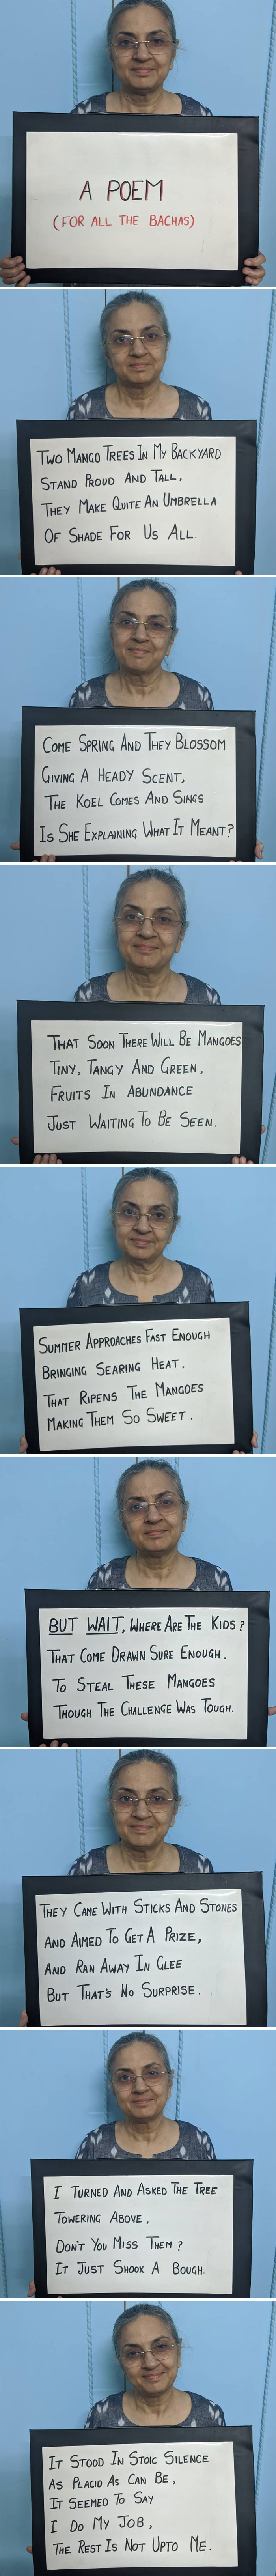 A POEM
(FOR ALL THE BACHAS)
TWO MANGO TREES IN MY BACKYARD
STAND PROUD AND TALL,
THEY MAKE QUITE AN UMBRELLA
OF SHADE FOR US ALL.
COME SPRING AND THEY BLOSSOM
GIVING A HEADY SCENT,
THE KOEL COMES AND SINGS
IS SHE EXPLAINING WHAT IT MEANT?
THAT SOON THERE WILL BE MANGOES
TINY, TANGY AND GREEN,
FRUITS IN ABUNDANCE
JUST WAITING TO BE SEEN.
SUMMER APPROACHES FAST ENOUGH
BRINGING SEARING HEAT.
THAT RIPENS THE MANGOES
MAKING THEM SO SWEET.
BUT WAIT, WHERE ARE THE KIDS?
THAT COME DRAWN SURE ENOUGH.
TO STEAL THESE MANGOES
THOUGH THE CHALLENGE WAS TOUGH.
THEY CAME WITH STICKS AND STONES
AND AIMED TO GET A PRIZE,
AND RAN AWAY IN GLEE
BUT THAT'S NO SURPRISE.
I TURNED AND ASKED THE TREE
TOWERING ABOVE,
DON'T YOU MISS THEM?
IT JUST SHOOK A BOUGH.
IT STOOD IN STOIC SILENCE
AS PLACID AS CAN BE,
IT SEEMED TO SAY
I DO MY JOB,
THE REST IS NOT UPTO ME.